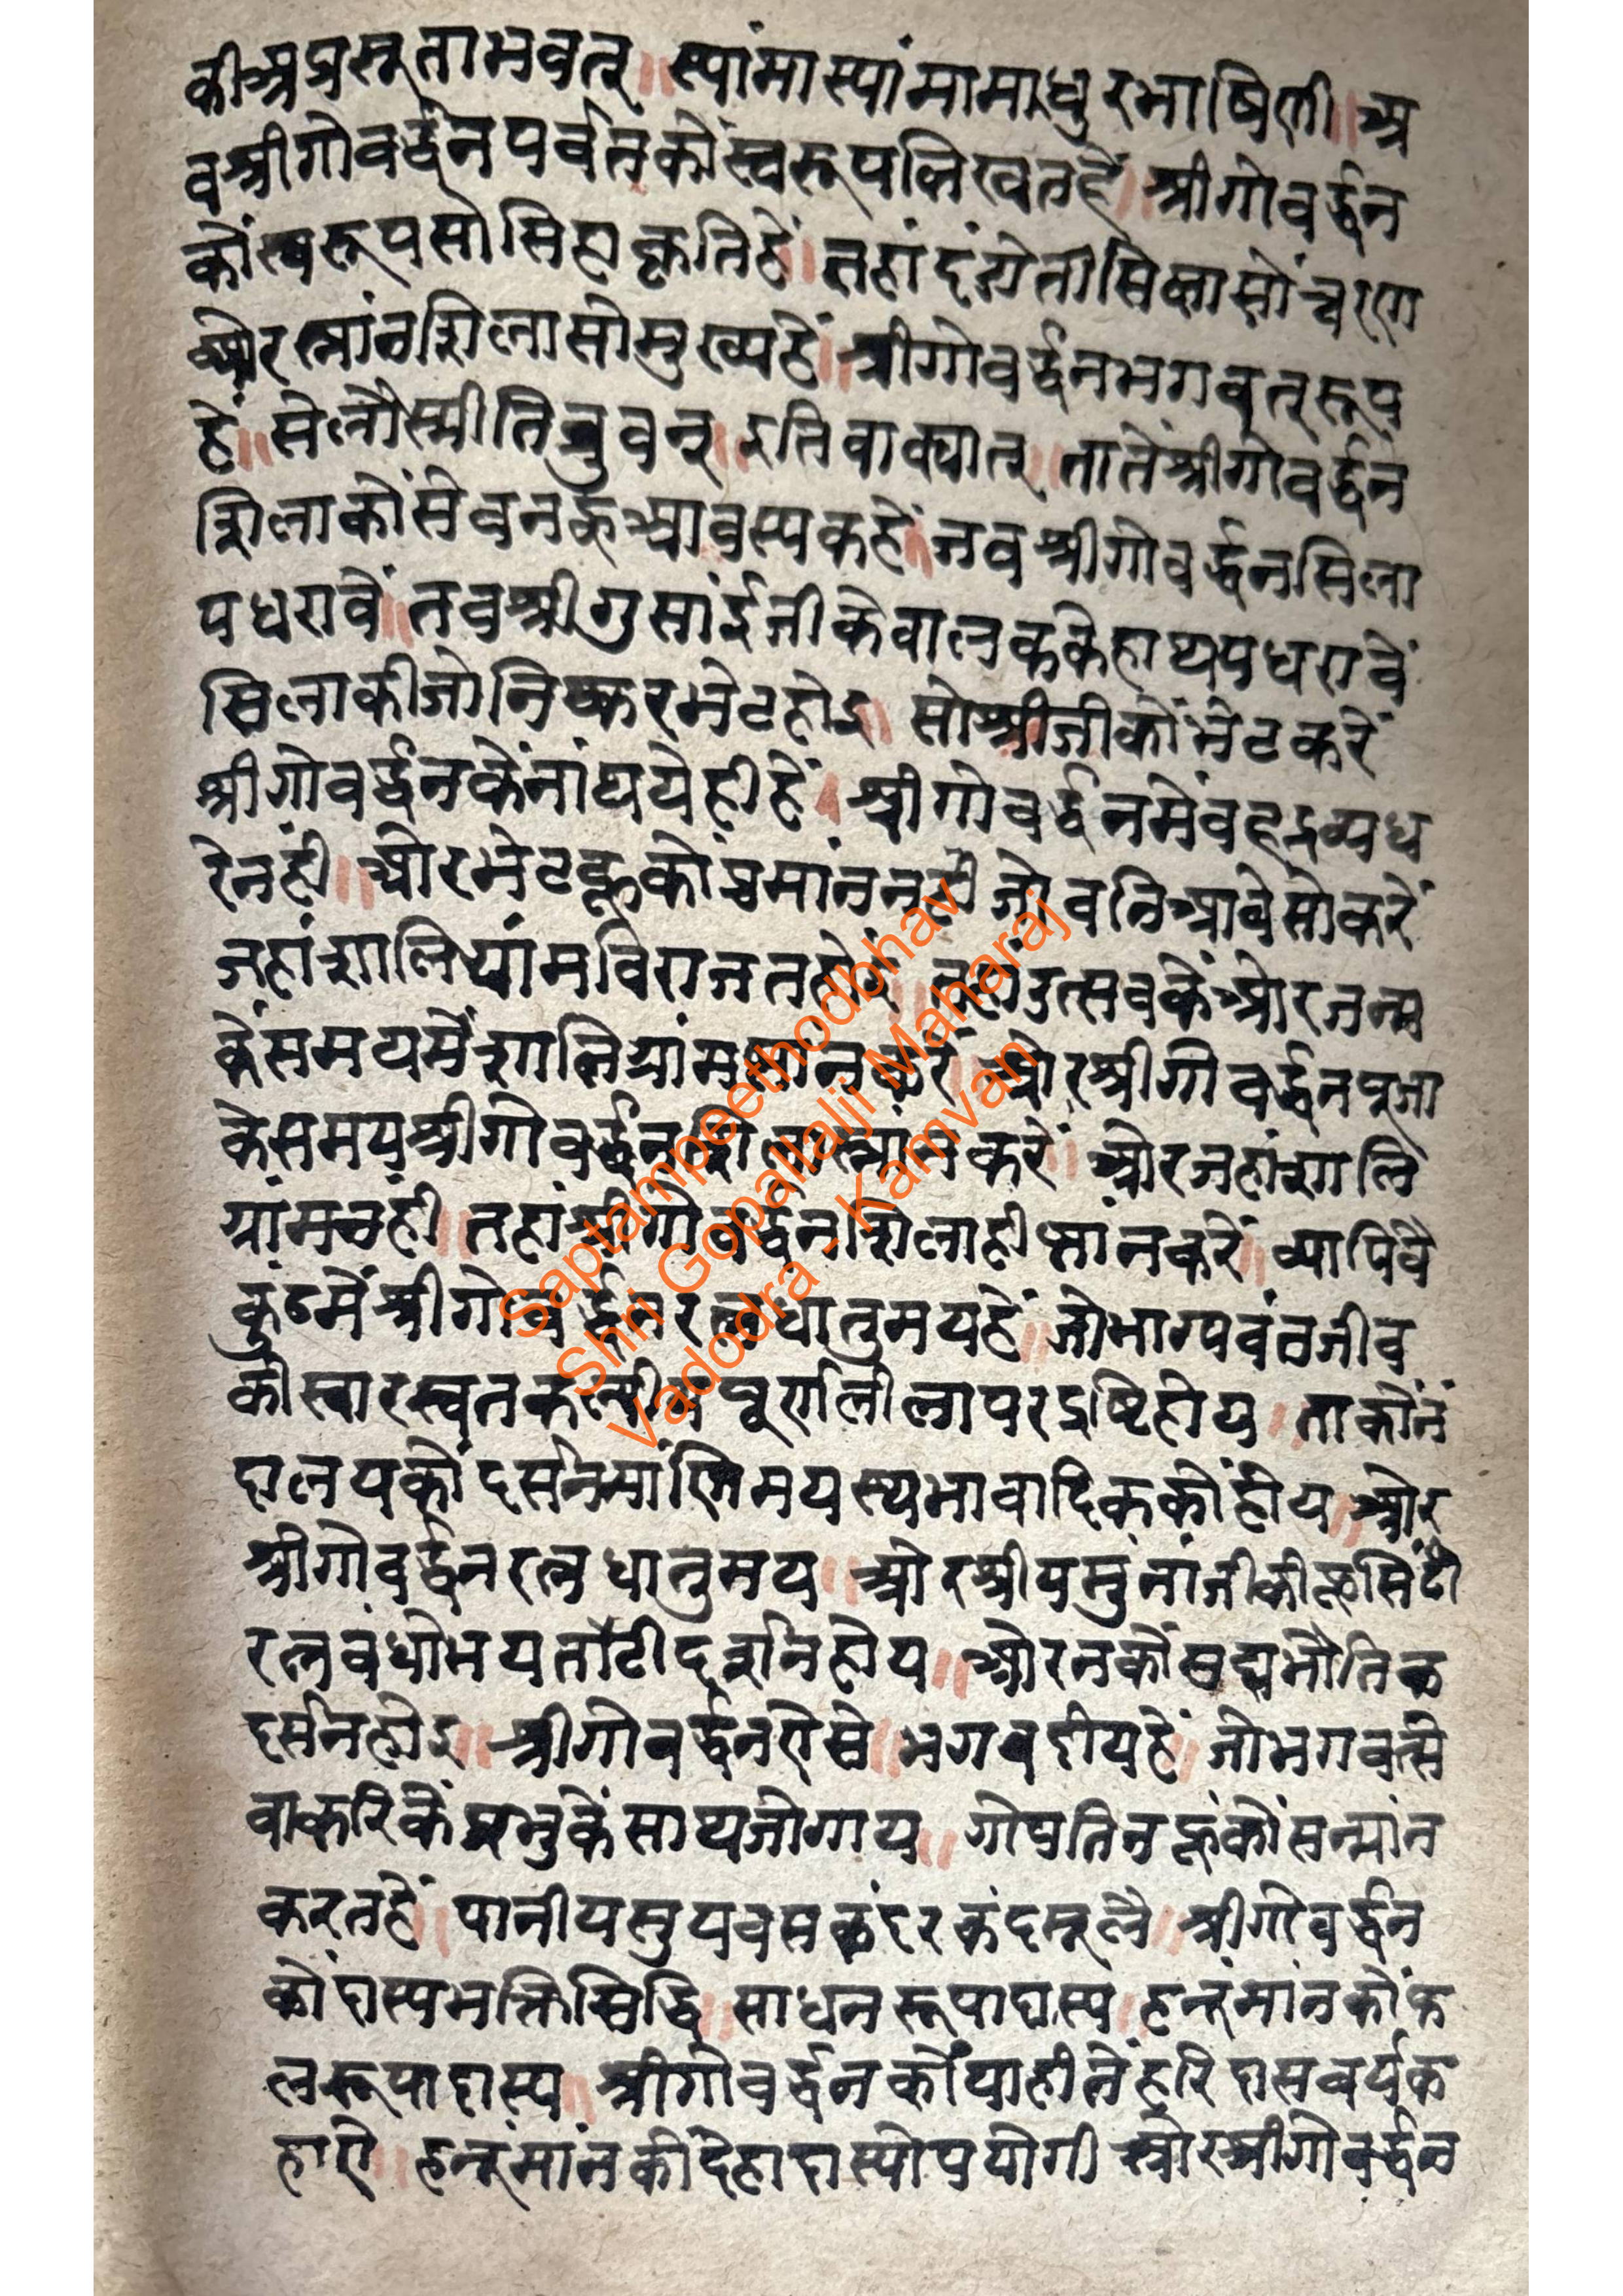 की अप्रसूताभवत् ॥ स्यांमास्यांमामाधुरभाषिणी ॥ अ
वश्रीगोवर्द्धनपर्वतकोंस्वरूपलिखतहें ॥ श्रीगोवर्द्धन
कोंस्वरूपसोसिंहाकृतिहें ॥ तहां दंडोतीसिलासोंचरण
ओरस्नांनशिलासोमुख्यहें ॥ श्रीगोवर्द्धनभगवत्रूप
हें ॥ सेलौस्मीतिब्रुवन् ॥ इतिवाक्यात् ॥ तातेंश्रीगोवर्द्धन
शिलाकोंसेवनहूआवस्यकहें ॥ जवश्रीगोवर्द्धनसिला
पधरावें ॥ तवश्रीगुसांईजीकेवालककेहाथपधरावें
सिलाकीजोनिष्करभेटहोइ ॥ सोश्रीजीकोंभेटकरें
श्रीगोवर्द्धनकेंनांथयेहीहें ॥ श्रीगोवर्द्धनमेंवहद्रव्यध
रेनंही ॥ ओरभेटहूकोप्रमांननही जोवनिआवेसोकरें
जहांशालिग्रांमविराजतहोइ ॥ तहांउत्सवकेंओरजन्म
केंसमयमेंशालिग्रांमस्नानकरें ॥ ओरश्रीगोवर्द्धनपूजा
केसमयश्रीगोवर्द्धनशिलास्नांनकरें ॥ ओरजहांशालि
ग्रांमनंही ॥ तहांश्रीगोवर्द्धनशिलाहीस्नांनकरें ॥ व्यापिवै
कुंठमेंश्रीगोवर्द्धनरत्नधातुमयहें ॥ जोभाग्यवंतजीव
कीस्वारस्वतकल्पीय पूर्णलीलापरदृष्टिहोय ॥ ताकोंनं
दालयकोंदर्सनमांणिमयस्थभावादिककोंहोय ॥ ओर
श्रीगोवर्द्धनरत्नधातुमय ॥ ओरश्रीयमुनांजीकीहूसिंढी
रत्नवंधोभयतोटीदर्शनहोय ॥ ओरनकोंसद्यभौतिक
दर्सनहोइ ॥ श्रीगोवर्द्धनऐसे ॥ भगवदीयहें ॥ जोभगवत्से
वाकरिकेंप्रभुकेंसाथजोगाय ॥ गोपतिनहूंकोंसन्मांन
करतहें ॥ पानीयसुयवसकंदरकंदमूलै ॥ श्रीगोवर्द्धन
कोंदास्यभक्तिसिद्धि ॥ साधनरूपादास्य ॥ हनूंमांनकोंफ
लरूपादास्य ॥ श्रीगोवर्द्धनकोंयाहीतेंहरिदासवर्यक
हाऐ ॥ हनूंमांनकीदेहादास्योपयोगी ओरश्रीगोवर्द्धन
Saptampeethodbhav
Shri Gopallalji Maharaj
Vadodra - Kamvan